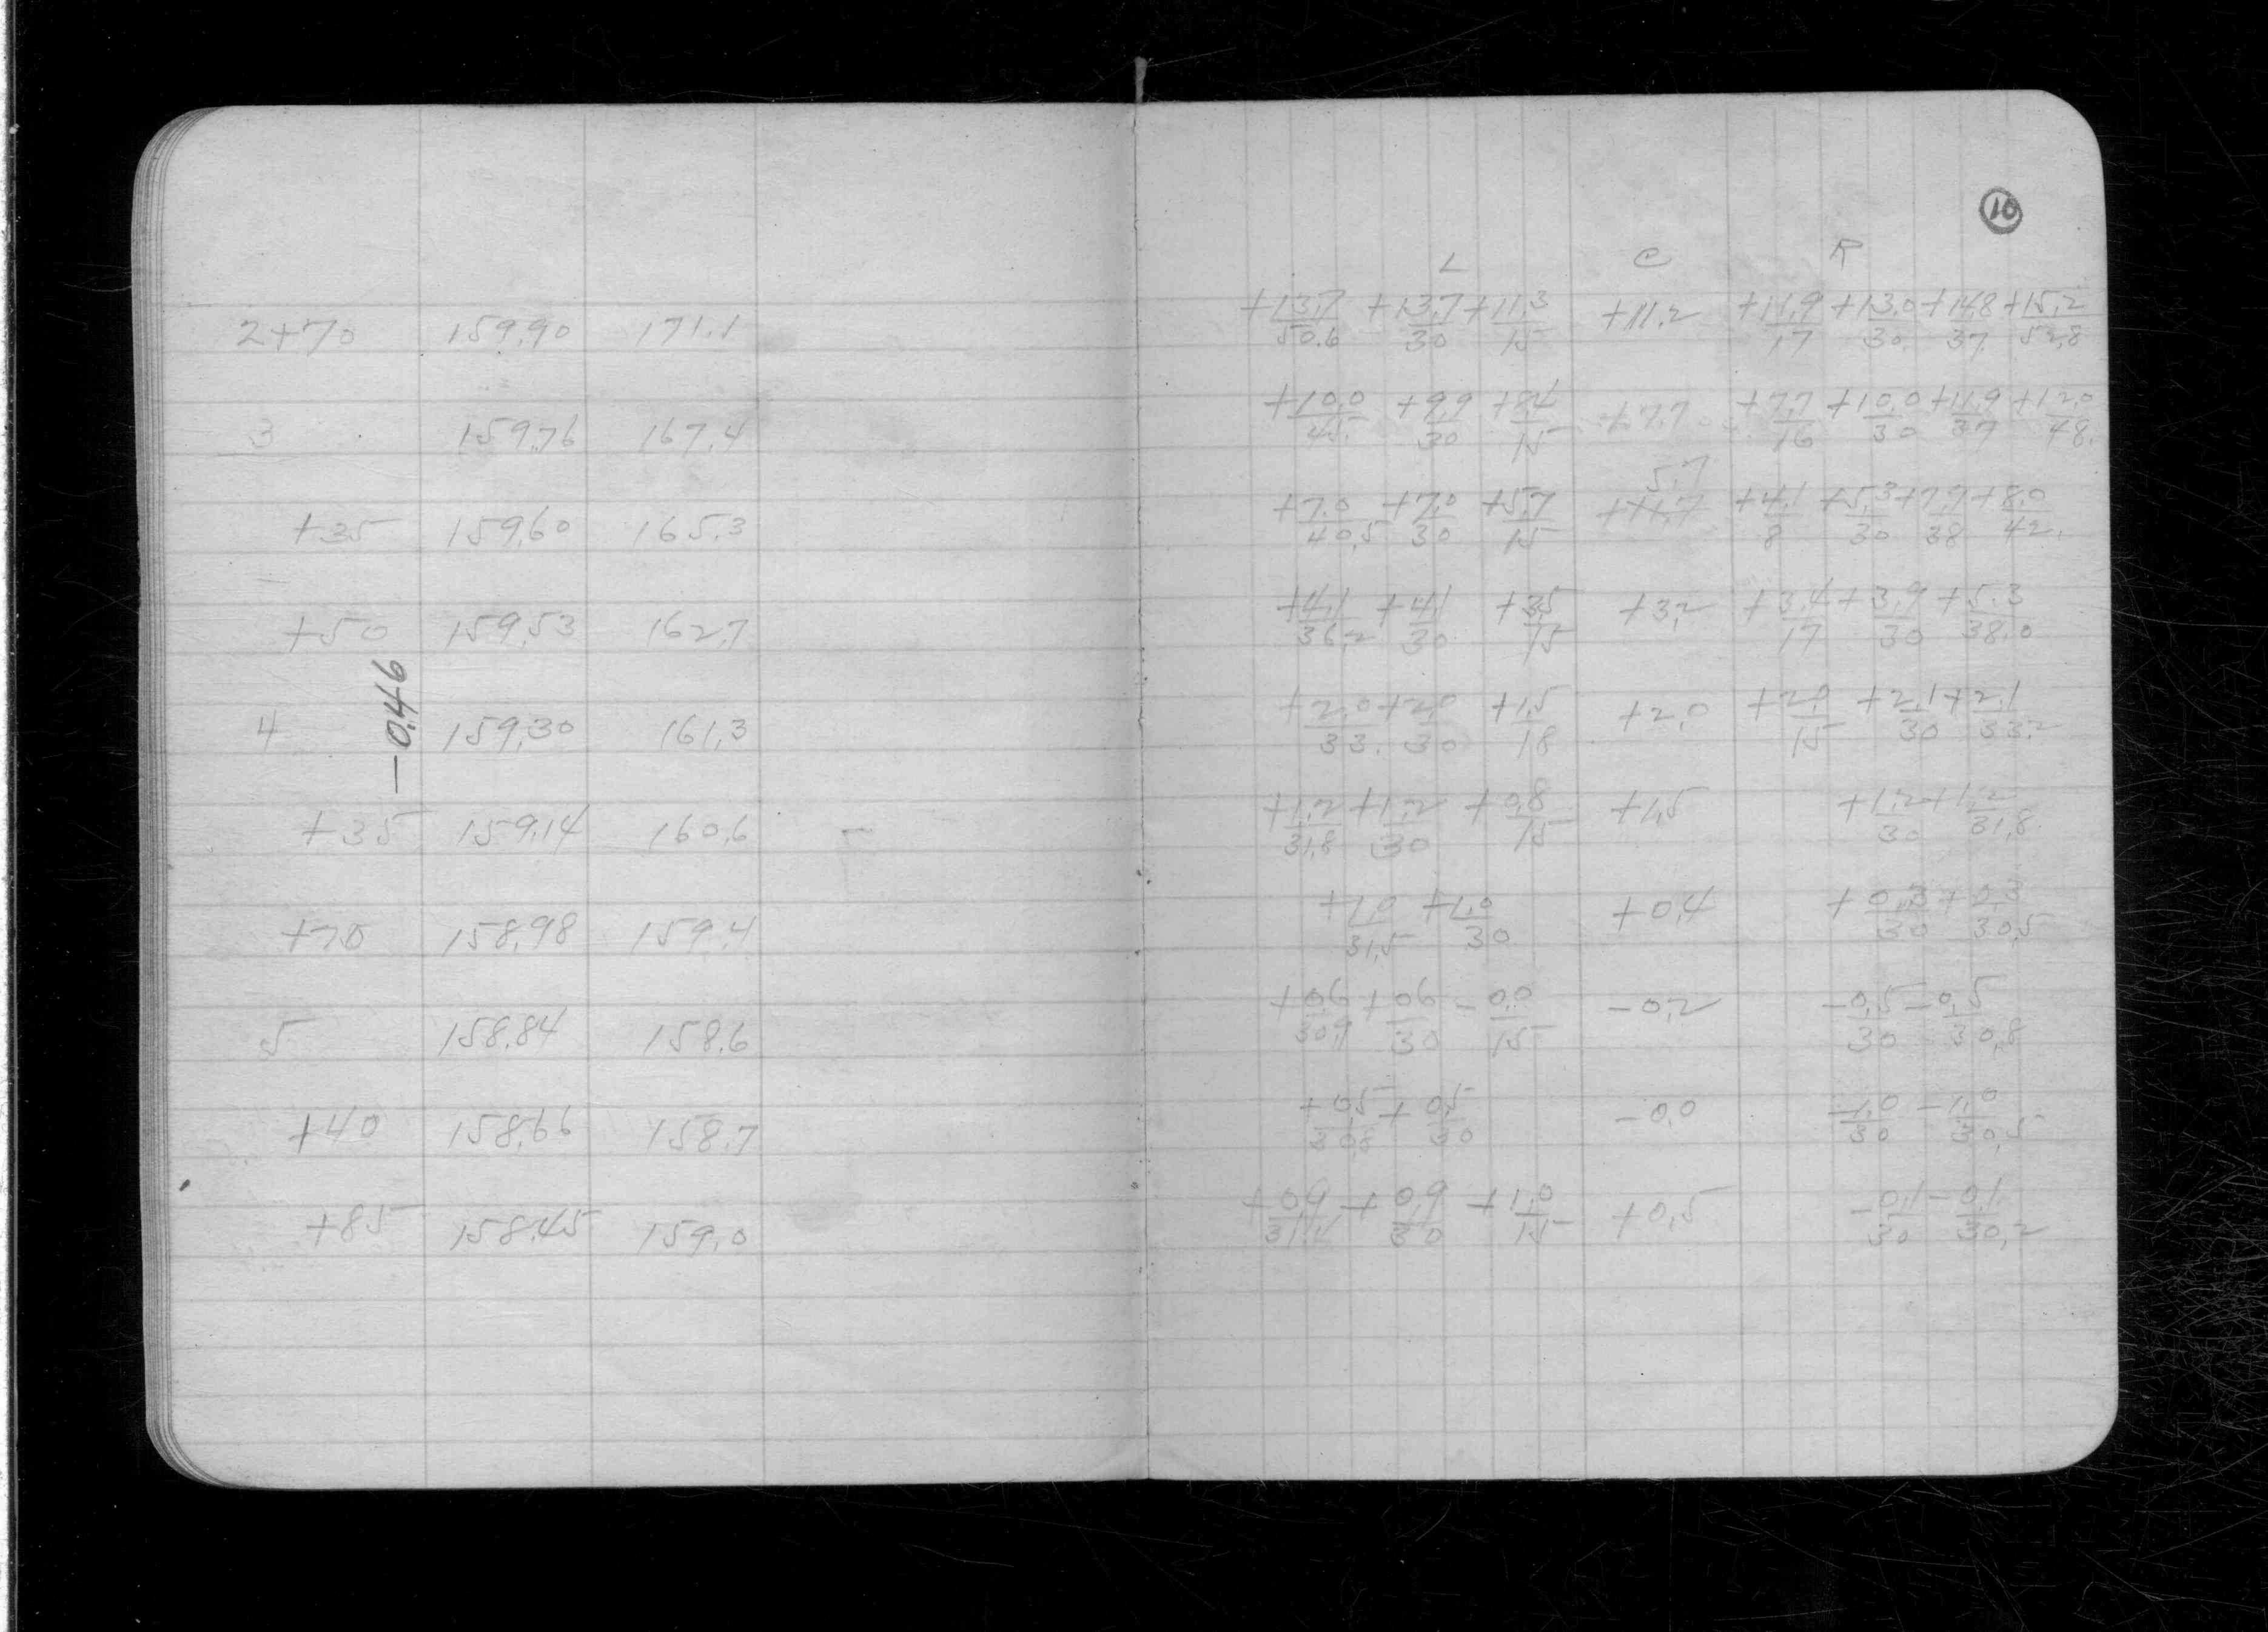 10
L C R
2+70 159.90 171.1 +13.7/50.6 +13.7/30 +11.3/15 +11.2 +11.9/17 +13.0/30. +14.8/37. +15.2/52.8
3 159.76 167.4 +10.0/45. +9.9/30 +8.4/15 +7.7 +7.7/16 +10.0/30 +11.9/37 +12.0/48.
5.7
+35 159.60 165.3 +7.0/40.5 +7.0/30 +5.7/15 +4.1/8 +5.3/30 +7.7/38 +8.0/42.
+50 159.53 162.7 +4.1/36.2 +4.1/30 +3.5/15 +3.2 +3.4/17 +3.9/30 +5.3/38.0
-0.46
4 159.30 161.3 +2.0/33. +2.0/30 +1.5/18 +2.0 +2.0/15 +2.1/30 +2.1/33.2
+35 159.14 160.6 +1.2/31.8 +1.2/30 +0.8/15 +1.5 +1.2/30 +1.2/31.8
+70 158.98 159.4 +1.0/31.5 +1.0/30 +0.4 +0.3/30 +0.3/30.5
5 158.84 158.6 +0.6/30.9 +0.6/30 -0.0/15 -0.2 -0.5/30 -0.5/30.8
+40 158.66 158.7 +0.5/30.8 +0.5/30 -0.0 -1.0/30 -1.0/30.5
+85 158.45 159.0 +0.9/31.4 +0.9/30 +1.0/15 +0.5 -0.1/30 -0.1/30.2